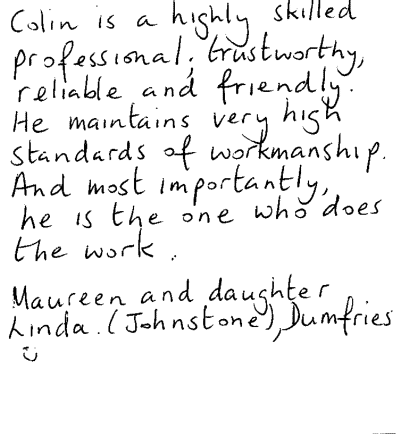 Colin is a highly skilled
professional; trustworthy,
reliable and friendly.
He maintains very high
standards of workmanship.
And most importantly,
he is the one who does
the work.
Maureen and daughter
Linda. (Johnstone), Dumfries